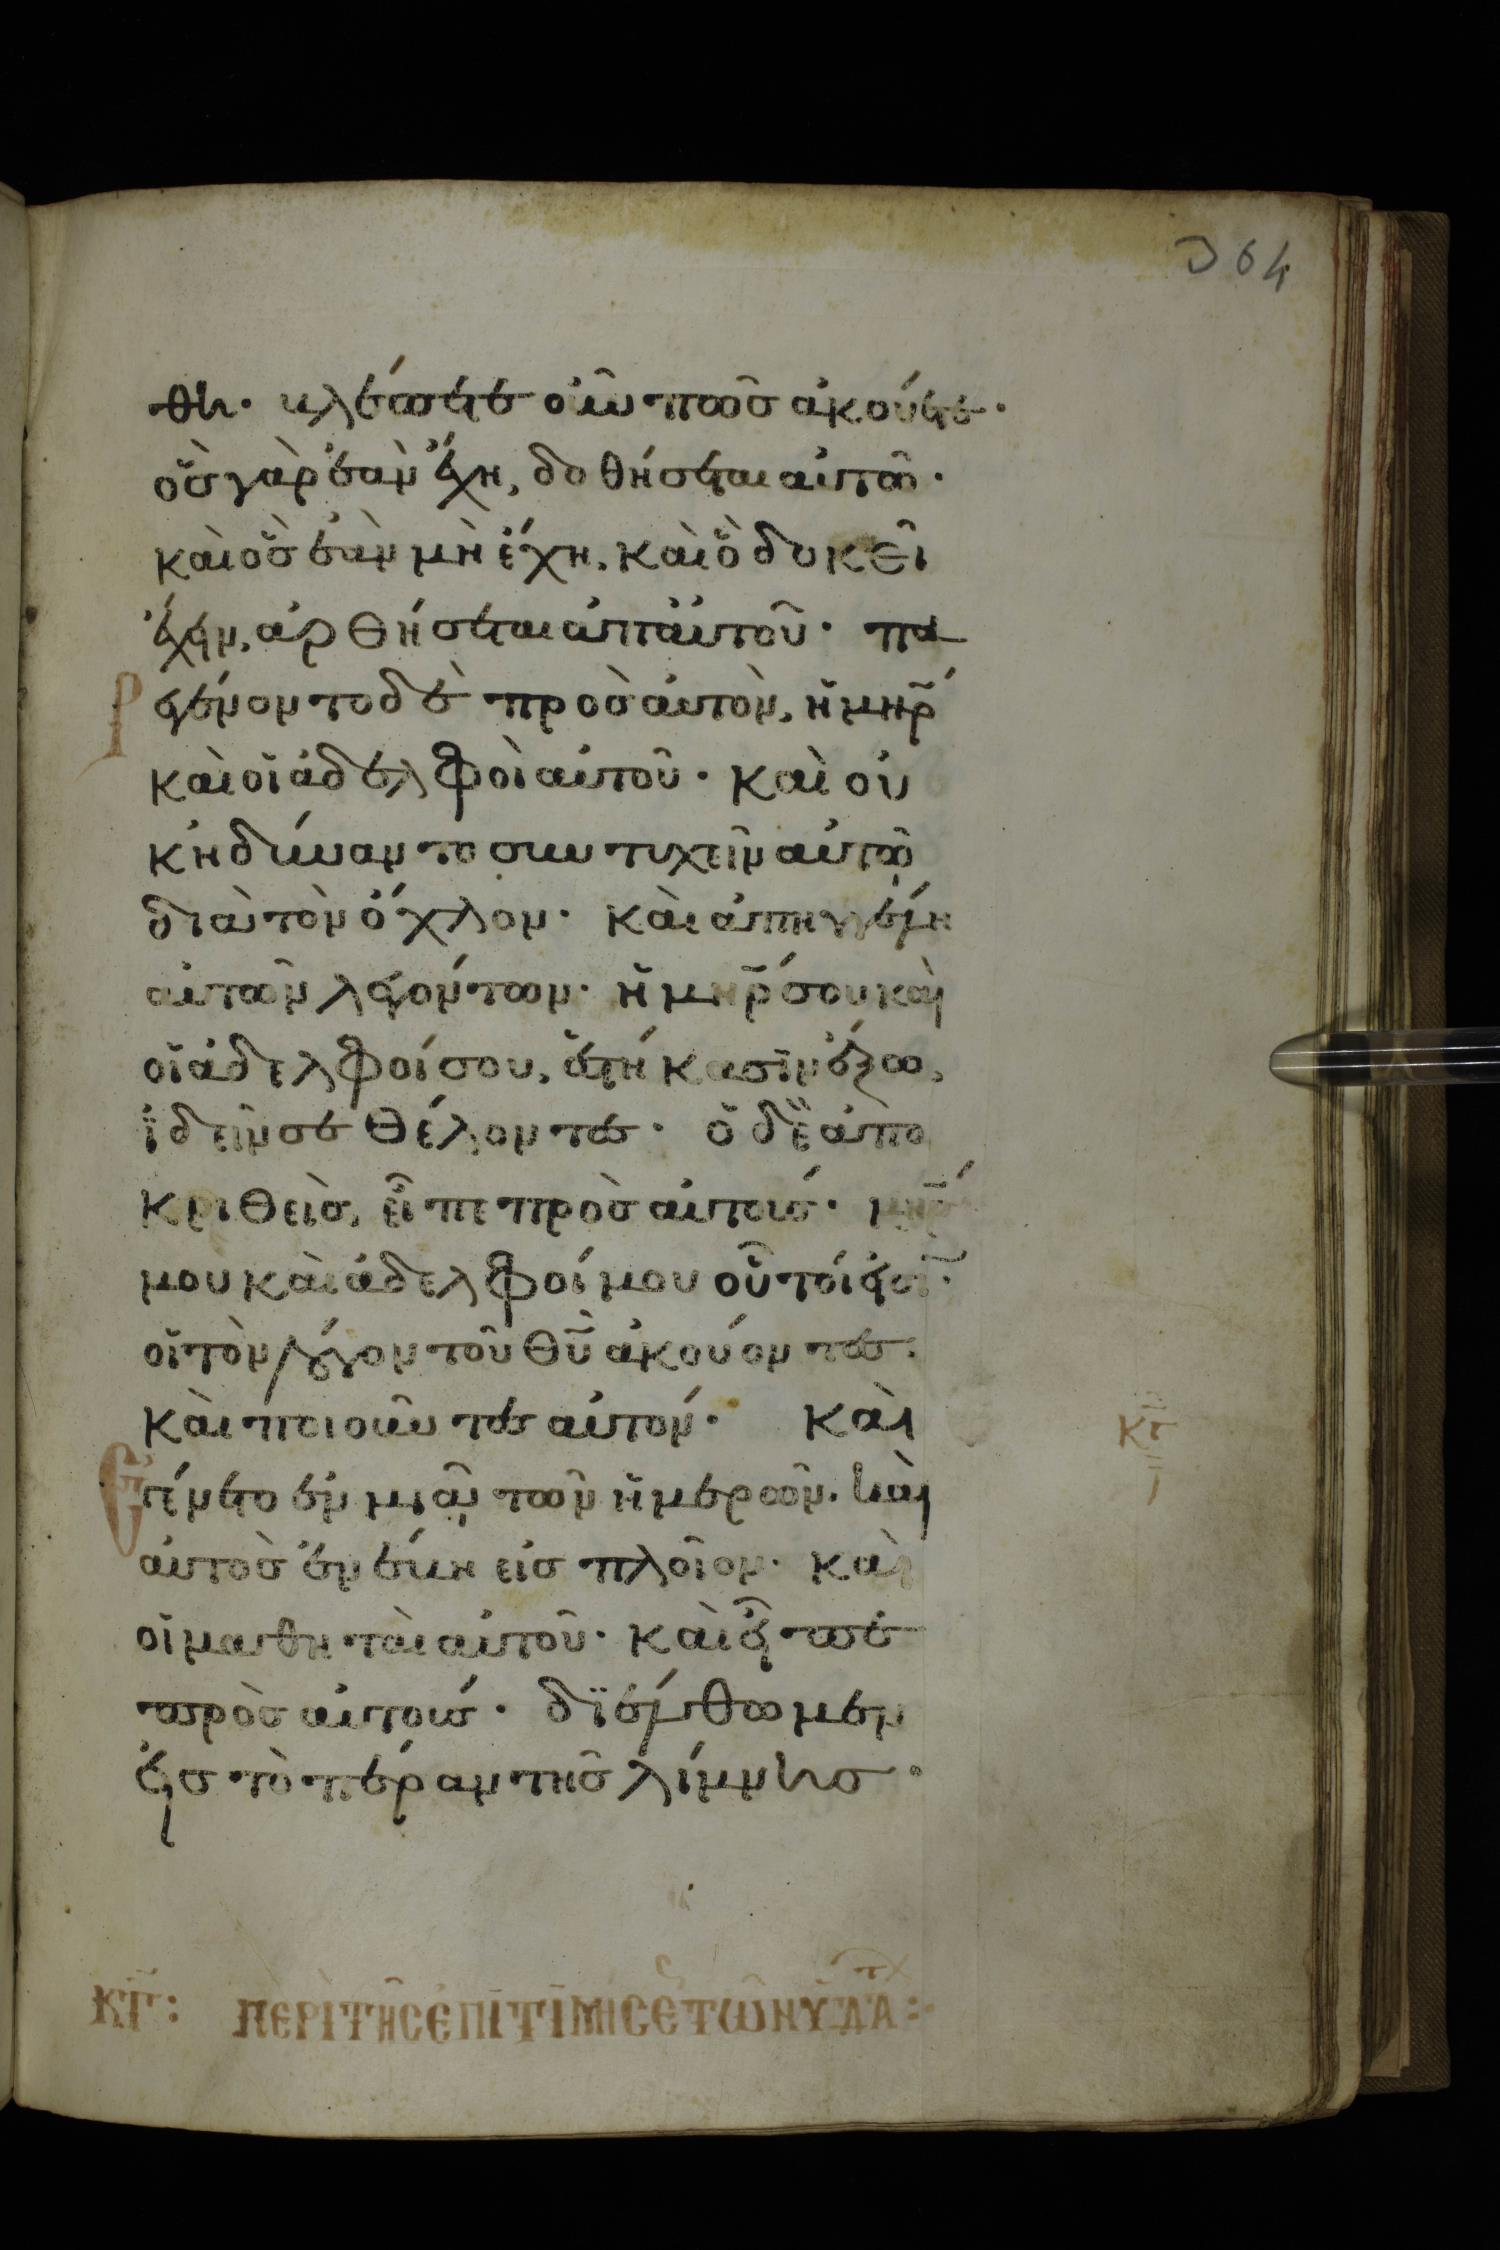 364
θη· βλέπετε οὖν πῶς ἀκούετε·
ὃς γὰρ ἐὰν ἔχη, δοθήσεται αὐτῶ·
καὶ ὃς ἐὰν μὴ ἔχη, καὶ ὃ δοκεῖ
ἔχειν, ἀρθήσεται ἀπ αὐτοῦ· πα
ρεγένοντο δὲ πρὸς αὐτὸν, ἡ μηρ
καὶ οἱ ἀδελφοὶ αὐτοῦ· καὶ οὐ
κ ἠδύναντο συντυχεῖν αὐτῶ
διὰ τὸν ὄχλον· καὶ ἀπηγγέλη
αὐτῶν λεγόντων· ἡ μηρ σου καὶ
οἱ ἀδελφοί σου, ἑστήκασϊν ἔξω,
ἰδεῖν σε θέλοντες· ὁ δὲ ἀπο
κριθεὶς, εἶπε πρὸς αὐτούς· μηρ
μου καὶ ἀδελφοί μου οὗτοί εἰσι·
οἱ τὸν λόγον τοῦ θυ ἀκούοντες
καὶ ποιοῦντες αὐτόν· καὶ
Ἐγένετο ἐν μιᾶ τῶν ἡμερῶν· καὶ
αὐτὸς ἐνέβη εἰς πλοῖον· καὶ
οἱ μαθηταὶ αὐτοῦ· καὶ εἶπε
πρὸς αὐτούς· διέλθωμεν
εἰς τὸ πέραν τῆς λίμνης·
ΠΕΡῚ ΤΗ͂Σ ἘΠΙΤΙΜΙΣΕ ΤΩ͂Ν ὙΔΑ: